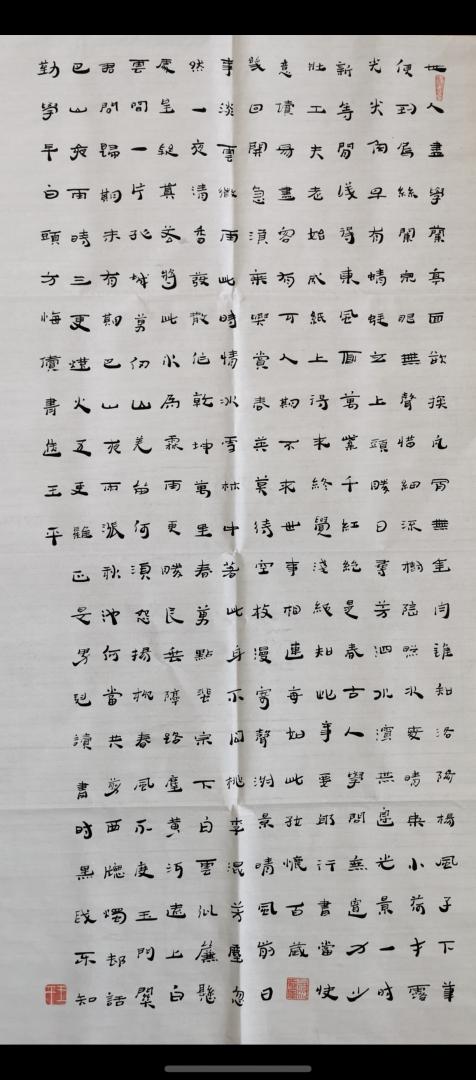 世人盡學蘭亭面欲換凡骨無金丹誰知洛陽楊風子下筆
便到烏絲闌泉眼無聲惜細流樹陰照水愛晴柔小荷才露
尖尖角早有蜻蜓立上頭勝日尋芳泗水濱無邊光景一時
新等閒識得東風面萬紫千紅總是春古人學問無遺力少
壯工夫老始成紙上得來終覺淺絕知此事要躬行書當快
意讀易盡客有可人期不來世事相違每如此好懷百歲
幾回開急須乘興賞春英莫待空枝漫寄聲淑景晴風前日
事淡雲微雨此時情冰雪林中著此身不同桃李混芳塵忽
然一夜清香發散作乾坤萬里春萬點飛泉下白雲似簾懸
處望疑真若將此水為霖雨更勝長垂隔路塵黃河遠上白
雲間一片孤城萬仞山羌笛何須怨楊柳春風不度玉門關
君問歸期未有期巴山夜雨漲秋池何當共剪西牕燭卻話
巴山夜雨時三更燈火五更雞正是男兒讀書時黑髮不知
勤學早白頭方悔讀書遲王平